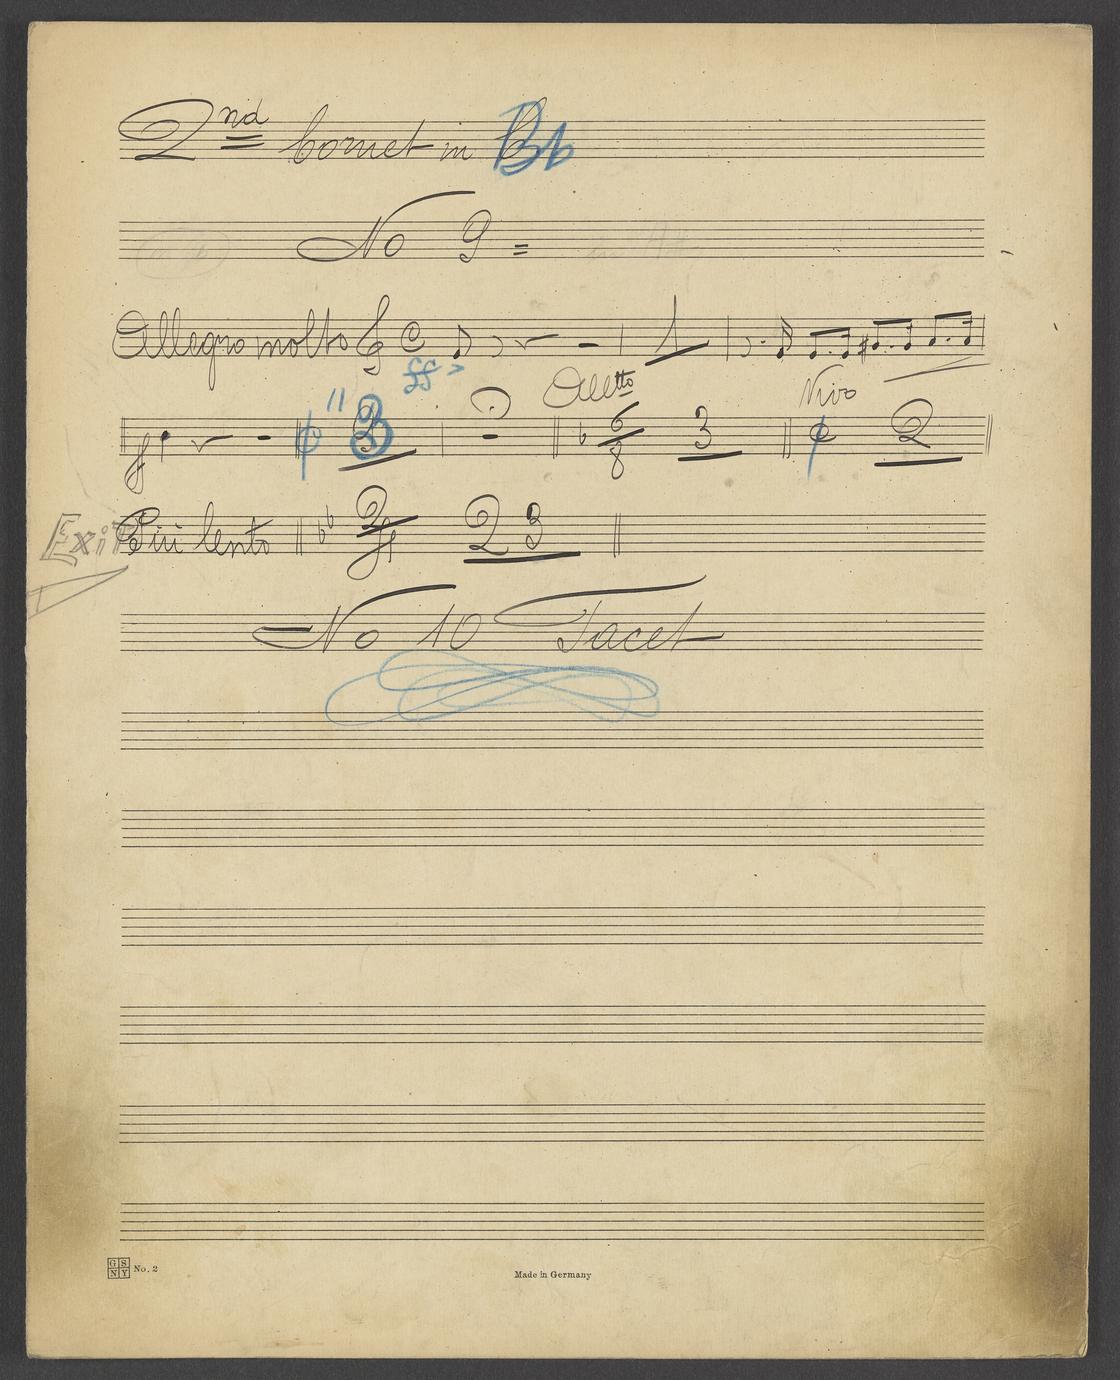 2nd Cornet in Bb
No 9
Allegro molto
ff
Alltto
Vivo
11 3
6
8
3
2
Exit
Più lento
2
4
23
No 10 Tacet
GSNY No. 2
Made in Germany